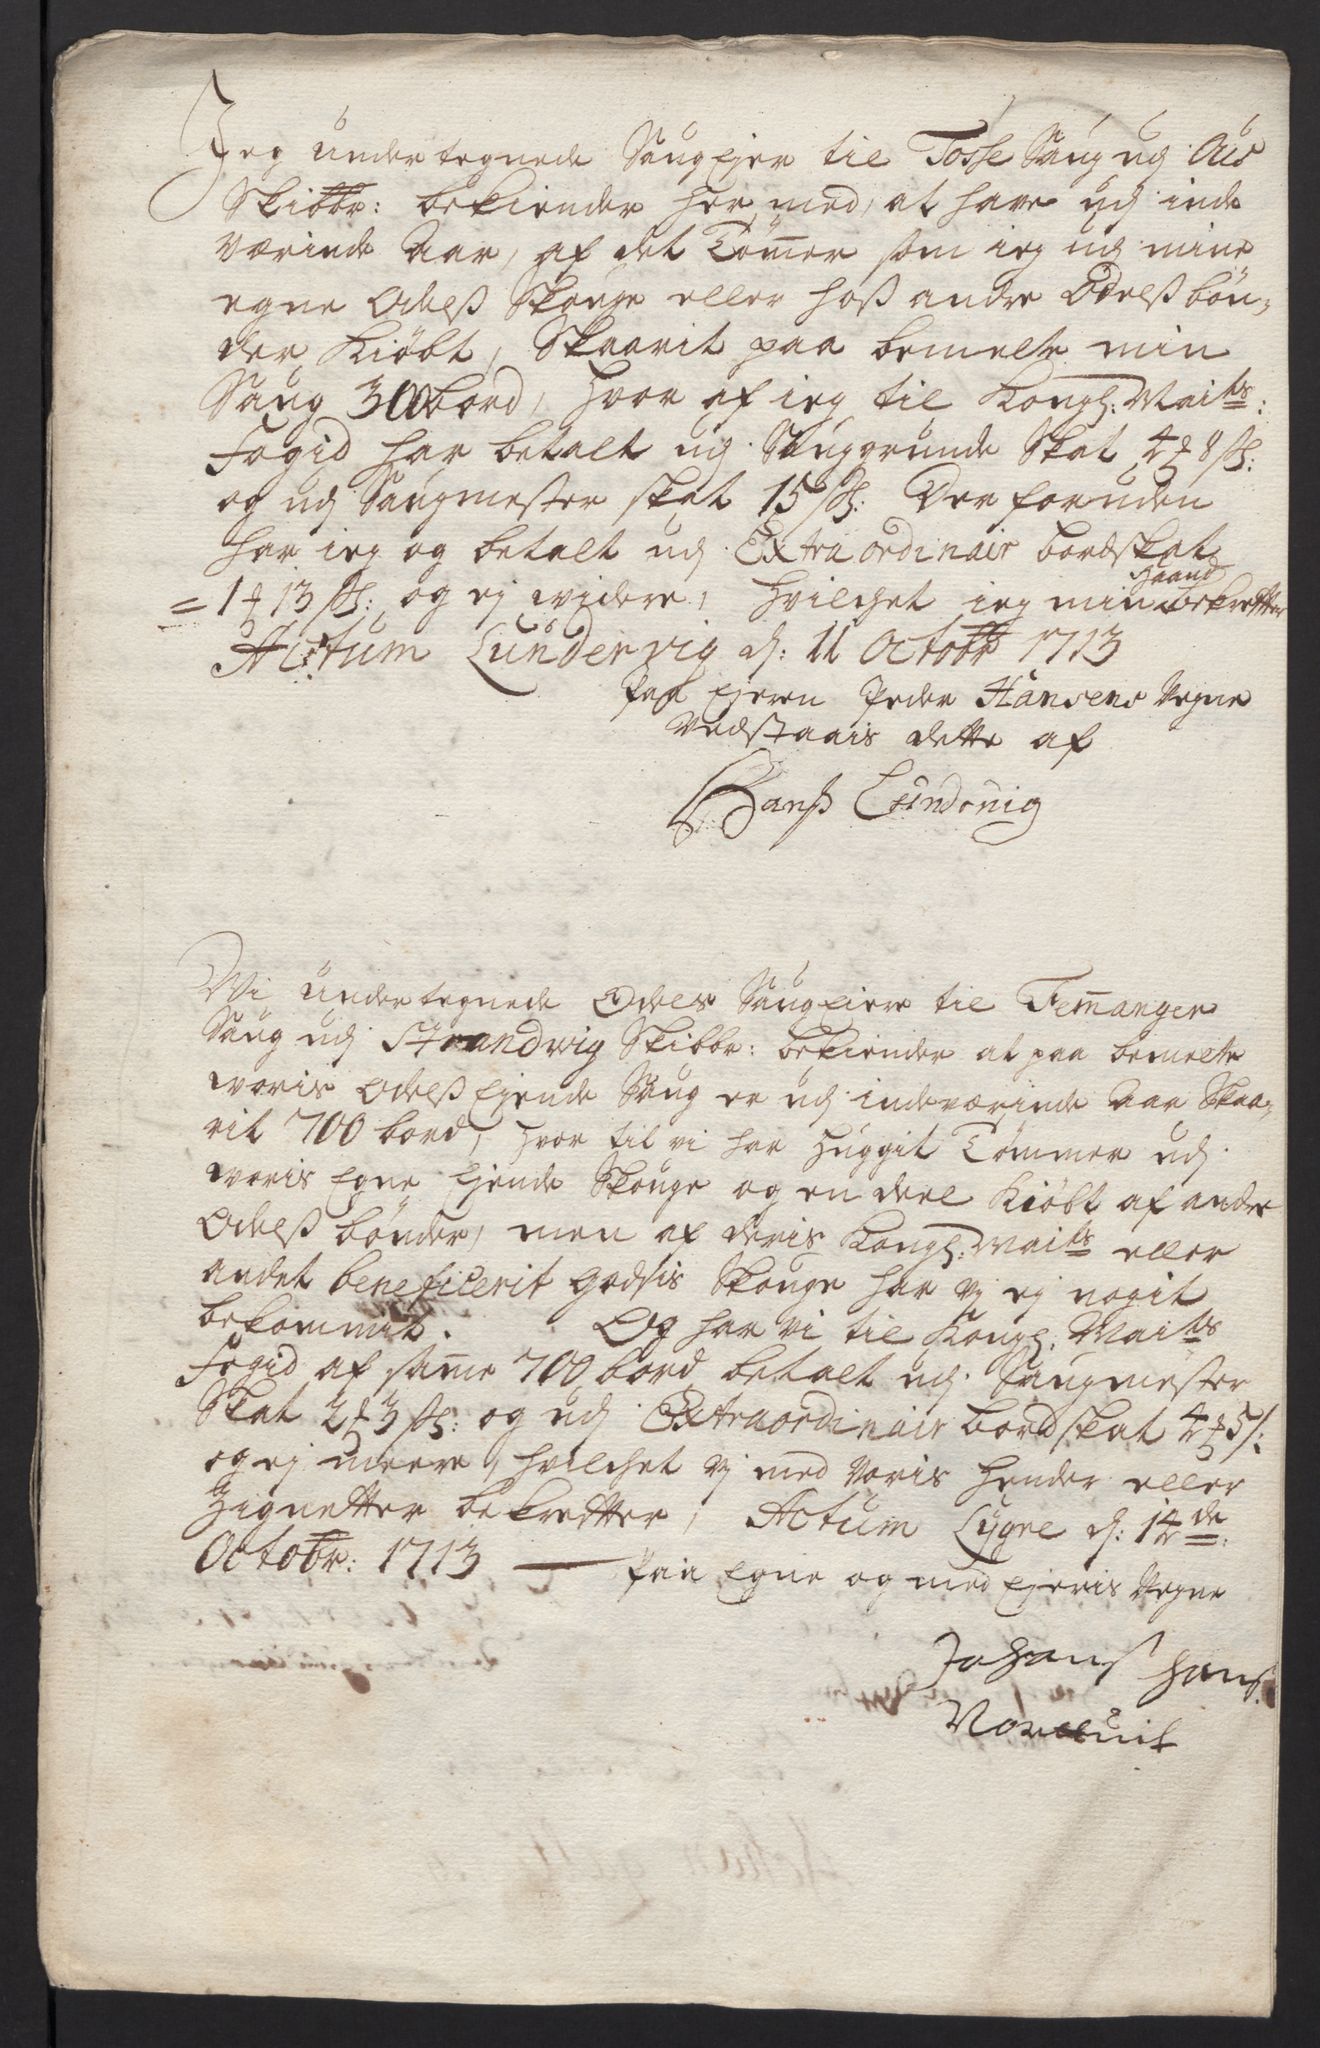 Jeg under tegnede Saug Ejer til Tosse Saug udj Ous
Skibbr: bekiender her med, at have udj inde
værinde Aar, af det Tømer som ieg udj mine
egne Odelß Skouge eller hoß andre Odelß bøn,
der Kiøbt, Skaarit paa bemelte min
Saug 300 bord, hvor af ieg til Kongl: Maits:
Fogid har betalt udj Sauggrunde Skat 4 8 sh:
og udj Saugmester skat 15 sh: Der foruden
har ieg og betalt udj Extra ordinair bordskat
= 1 13 sh: og ej widere, hvilchet ieg min Haand bekrefter
Actum Lundervig d: 11 Octobr 1713
Paa Ejeren Peder Hansens Vegne
Vedstaais dette af
Hanß Lundevig
Wi under tegnede Odels Saug Eiere til Femanger
Saug udj Strandwig Skibbr: bekiender at paa bemelte
woris Odelß Ejende Saug er udj indeværinde Aar Skaa,
rit 700 bord, hvor til vi har Huggit Tømmer udj
woris Egne Ejende Skouge og en deel Kiøbt af andre
Odelß bønder, men af deris Kongl: Maits eller
andet beneficerit Godsis Skouge har vj ej nogit
bekommit. Og har vi til Kongl: Maits
Fogid af same 700 bord betalt udj Saugmester
Skat 2 3 sh: og udj Extraordinair bord skat 4 5 s:
og ej videre, hvilchet vj med Voris Hender eller
Zignetter bekrefter, Actum Lygre d: 14de:
Octobr: 1713 — Paa Egne og med Ejeris Vegne
Johans hans